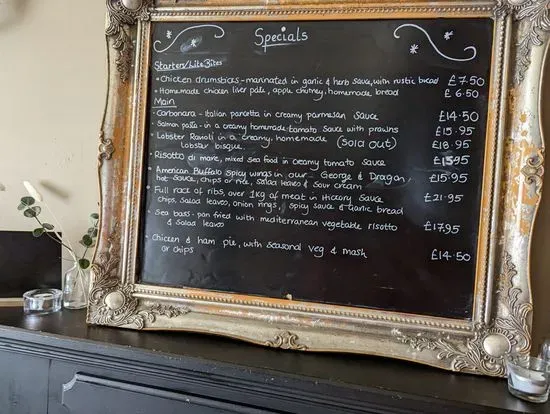 Specials
Starters/Lite Bites
• Chicken drumsticks - marinated in garlic & herb sauce, with rustic bread £7.50
• Homemade chicken liver pate, apple chutney, homemade bread £6.50
Main
• Carbonara - Italian pancetta in creamy parmesan sauce £14.50
Salmon pasta - in a creamy homemade tomato sauce with prawns £15.95
• Lobster Ravioli in a creamy, homemade (Sold out) £18.95
Lobster bisque.
• Risotto di mare, mixed sea food in creamy tomato sauce £15.95
• American Buffalo spicy wings in our George & Dragon, £15.95
hot sauce, chips or rice, salad leaves & sour cream
• Full rack of ribs, over 1kg of meat in Hickory Sauce £21.95
chips, salad leaves, onion rings, spicy sauce & garlic bread
• Sea bass - pan fried with mediterranean vegetable risotto £17.95
& salad leaves
Chicken & ham pie, with seasonal veg & mash £14.50
or chips